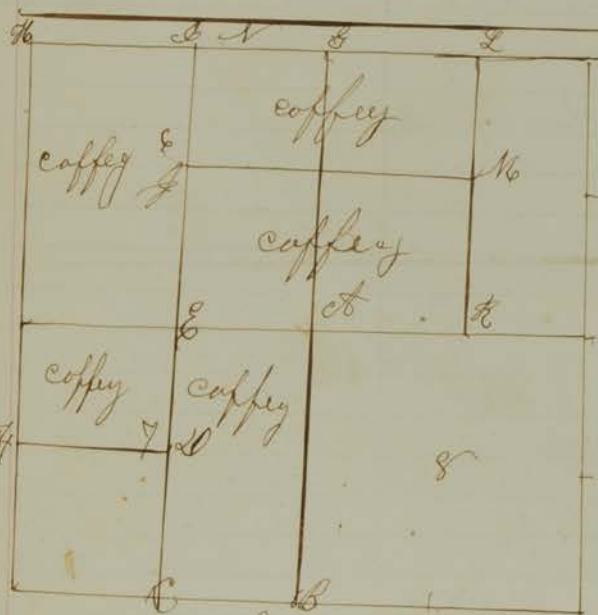 H I N G L
coffey
coffey 6
J M
coffey
E A K
coffey coffey
7 D
8
C B